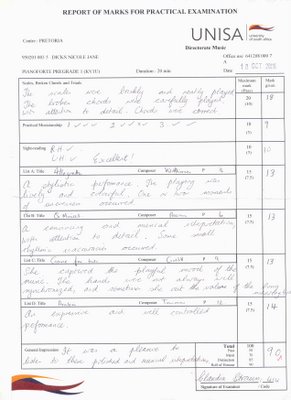 REPORT OF MARKS FOR PRACTICAL EXAMINATION
UNISA
university of south africa
Directorate Music
Centre: PRETORIA
DICKS NICOLE JANE
Office use:
A
18 OCT
PIANOFORTE PREGRADE 1
Duration: 20 min
Maximum mark (Pass)
Mark given
Scales, Broken Chords and Triads
The scales were lively and neatly played.
The broken chords were carefully played
with attention to detail. Chords were correct
20 (10)
18
Practical Musicianship
1 2 3
10 (5)
9
Sight-reading
R.H
L.H Excellent!
10 (5)
10
List A : Title Allegretto Composer P 4
A stylistic performance. The playing was
lively and colourful. One or two moments
of unevenness occurred.
15 (7.5)
13
List B : Title Composer P
A convincing and musical interpretation
with attention to detail. Some small
rhythmic inaccuracies occurred.
15 (7.5)
13
List C : Title Game for two Composer P 4
She captured the playful mood of the
music. The hands were not always well
synchronized, and sometimes she cut the values of the long notes
15 (7.5)
13
List D : Title Composer P
An expressive and well controlled
performance.
15 (7.5)
14
General Impression: It was a pleasure to
listen to these polished and musical interpretations.
Total 100
Pass 50
Merit
Distinction
Roll of Honour
90
Signature of Examiner
Code